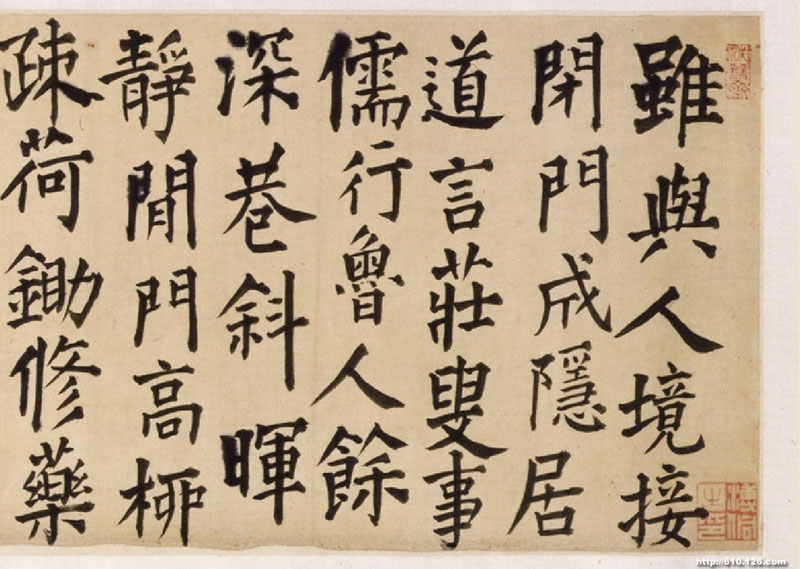 雖與人境接
閑門成隱居
道言莊叟事
儒行魯人餘
深巷斜暉
靜閒門高柳
疎荷鋤修藥
http://610.126.com